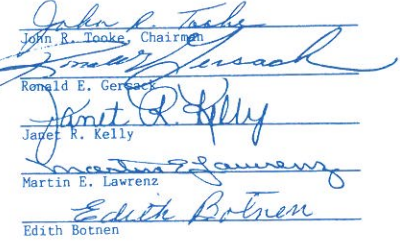 John R. Tooke
John R. Tooke, Chairman
Ronald E. Gersack
Ronald E. Gersack
Janet R. Kelly
Janet R. Kelly
Martin E Lawrenz
Martin E. Lawrenz
Edith Botnen
Edith Botnen